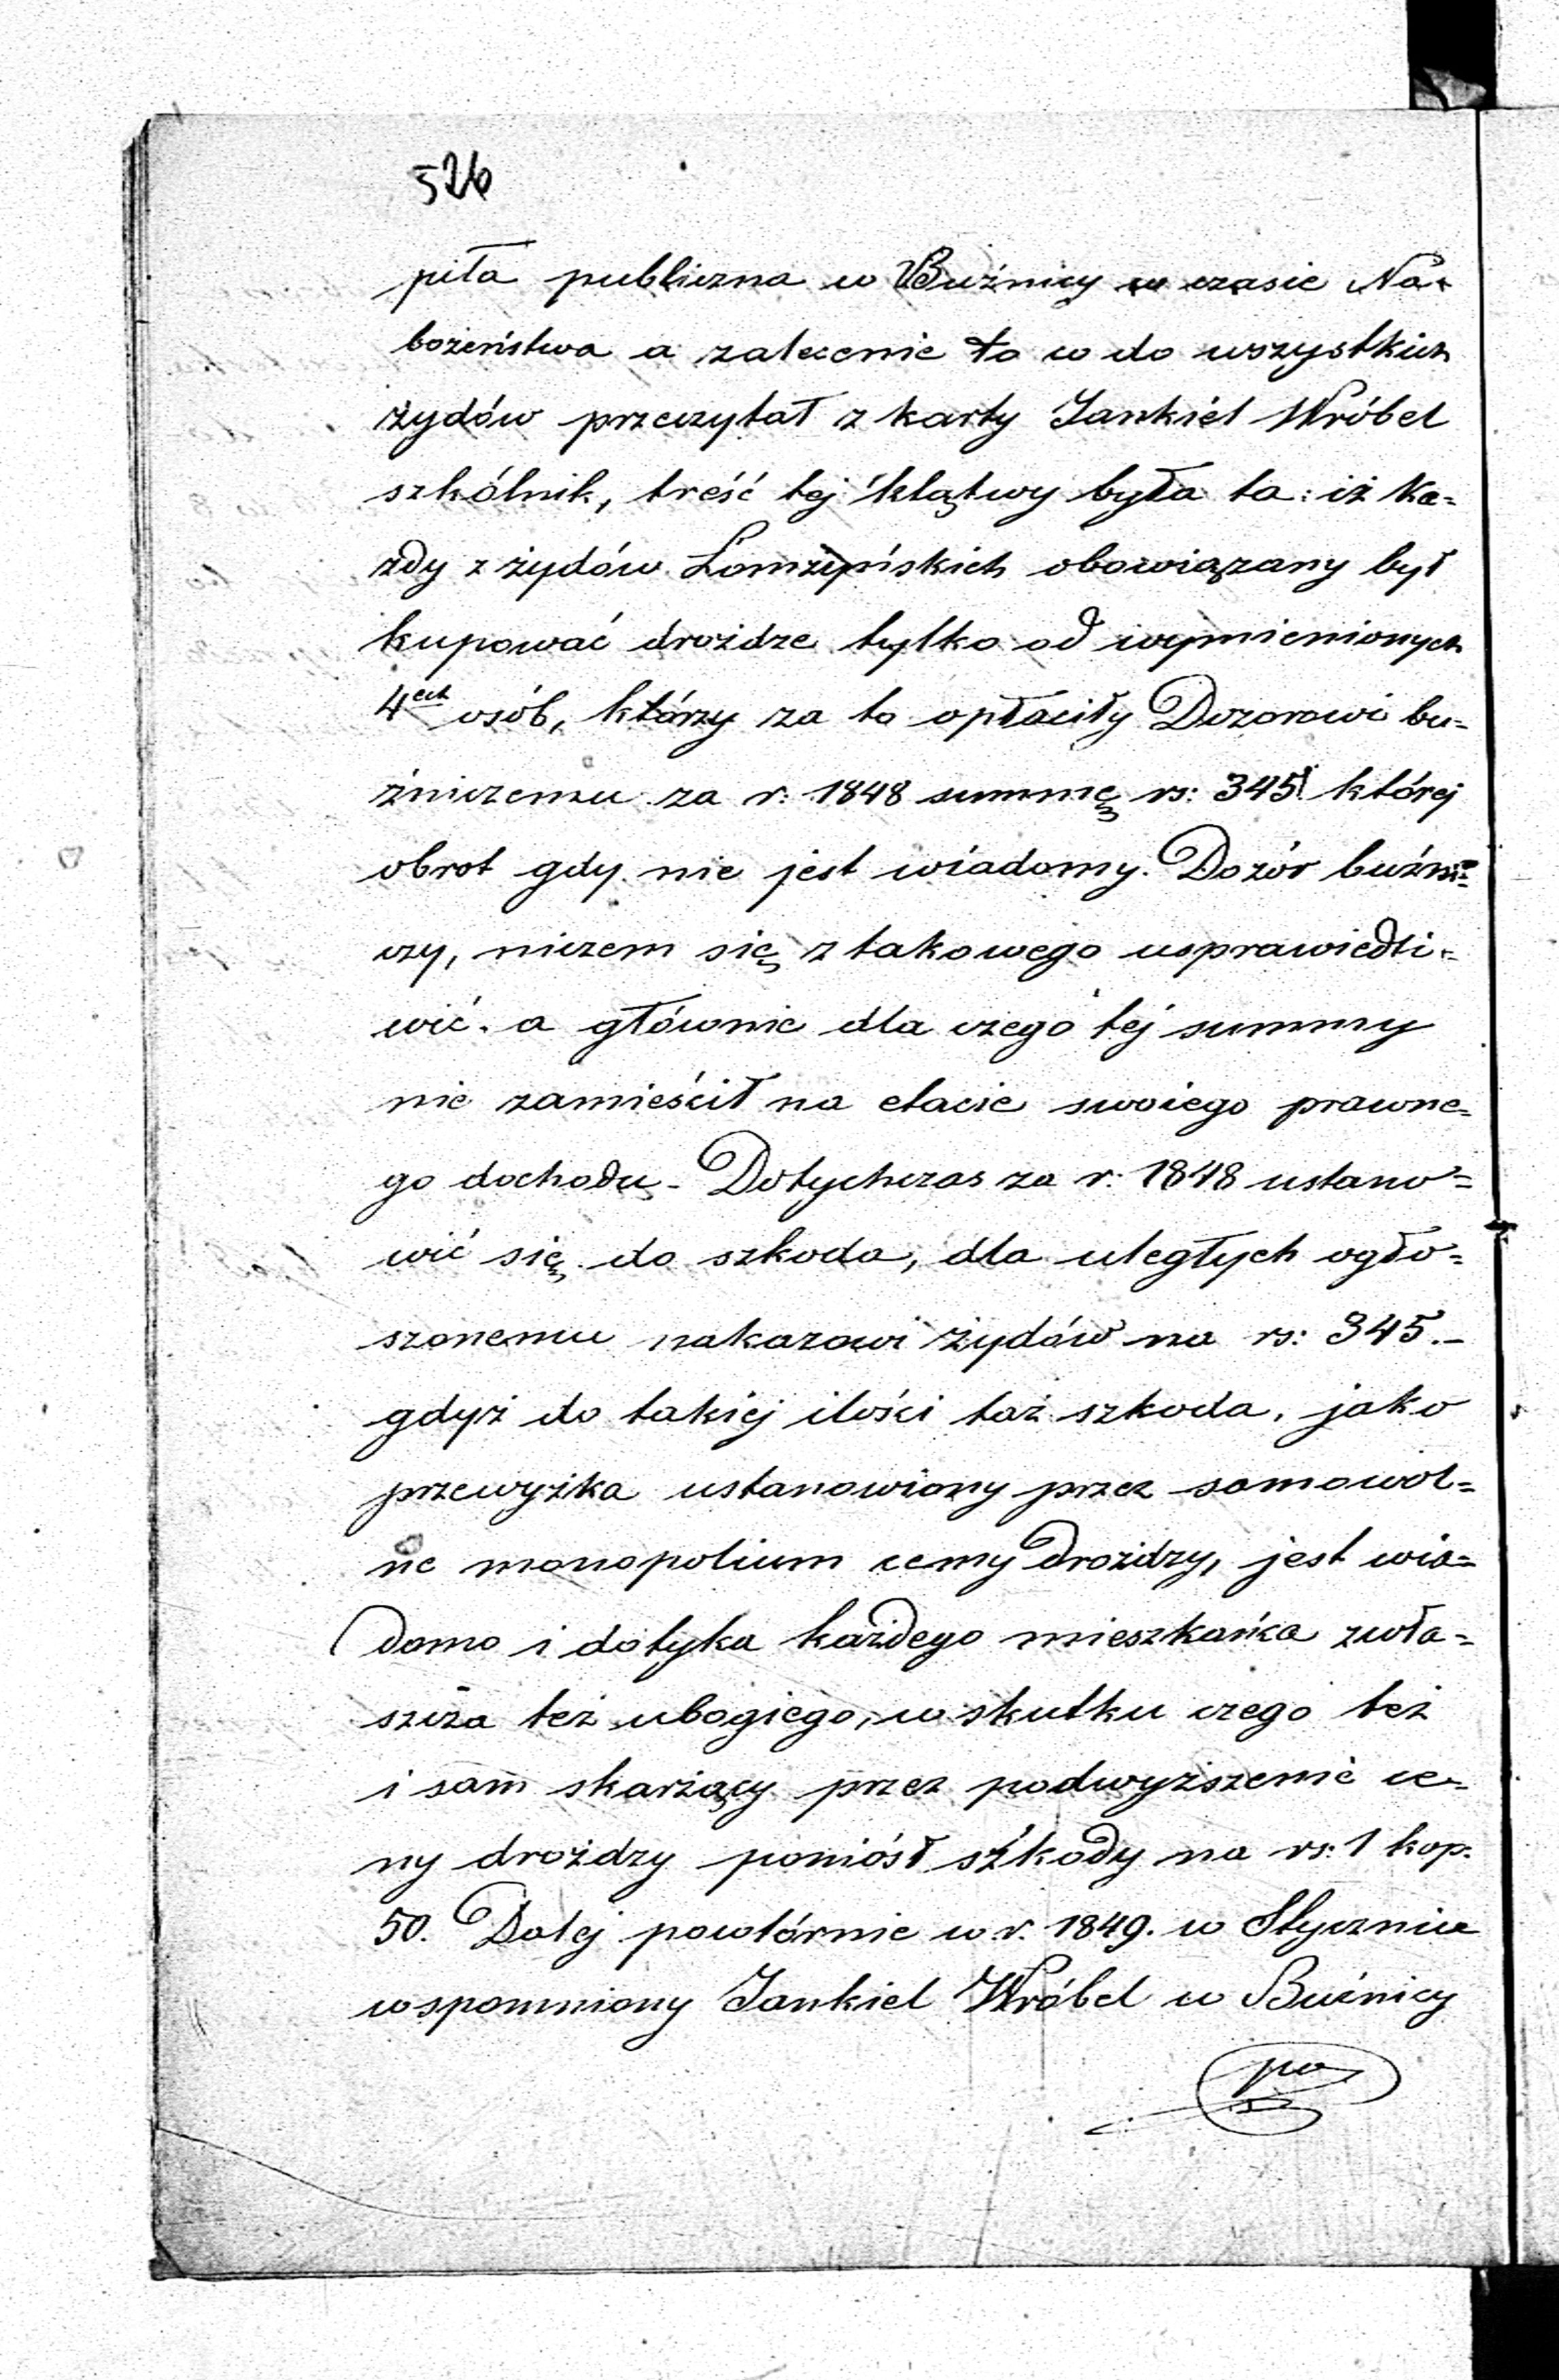 526
piła publiczna w Buźnicy w czasie Na=
bożeństwa a zalecenie to w do wszystkich
żydów przeczytał z karty Jankiel Wróbel
szkólnik, treść tej klątwy była ta: iż ka=
żdy z żydów Łomżyńskich obowiązany był
kupować drożdże tylko od wymienionych
4ech osób, którzy za to opłaciły Dozorowi bu=
źniczemu za r: 1848 summę rs: 345. której
obrot gdy nie jest wiadomy. Dozór buźni=
czy, niczem się z takowego usprawiedli=
wić. a głównie dla czego tej summy
nie zamieścił na etacie swoiego prawne=
go dochodu. Dotychczas za r: 1848 ustano=
wić się do szkoda, dla uległych ogło=
szonemu nakazowi żydów na rs: 345.-
gdyż do takiej ilości taż szkoda, jako
przewyżka ustanowiony przez samowol=
ne monopolium ceny drożdży, jest wia=
domo i dotyka każdego mieszkańca zwła=
szcza też ubogiego, w skutku czego też
i sam skarżący przez podwyższenie ce=
ny drożdży poniósł szkody na rs: 1 kop.
50. Dalej powtórnie w r. 1849. w Styczniu
wspomniony Jankiel Wróbel w Buźnicy
po